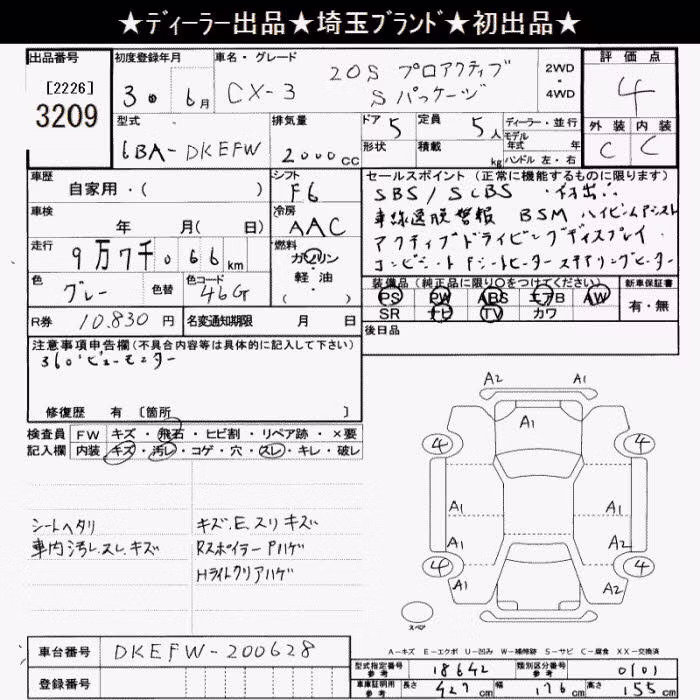 ★ディーラー出品★埼玉ブランド★初出品★
出品番号
[2226]
3209
初度登録年月
30年 6月
車名・グレード
CX-3
20S プロアクティブ
S パッケージ
2WD
・
4WD
評価点
4
外装 内装
C C
型式
6BA-DKEFW
排気量
2000cc
ドア 5
定員 5人
形状
積載 kg
ディーラー・並行
モデル年式 年
ハンドル 左・右
車歴
自家用・( )
シフト
F6
車検
年 月( 日)
冷房
AAC
走行
9万7千066km
燃料
ガソリン
・
軽油
・
( )
色
グレー
色替
色コード
46G
R券 10,830円
名変通知期限 月 日
セールスポイント(正常に機能するものに限ります)
SBS/SCBS
車線逸脱警報 BSM ハイビームアシスト
アクティブドライビングディスプレイ
シートヒーター ステアリングヒーター
装備品(純正品に限り○をつけてください)
PS PW ABS エアB AW
SR ナビ TV カワ
新車保証書
有・無
後日品
注意事項申告欄(不具合内容等は具体的に記入して下さい)
360°ビューモニター
修復歴 有 〔箇所 〕
検査員記入欄
FW キズ・飛石・ヒビ割・リペア跡・×要
内装 キズ・汚レ・コゲ・穴・スレ・キレ・破レ
シートヘタリ
車内汚レ.スレ.キズ
キズ.E.スリキズ
Rスポイラー Pハゲ
Hライトクリアハゲ
A2 A1
A1
4 4
A1 A1
A1 A2
4 4
A1 A2
スペア
A-キズ E-エクボ U-凹み W-補修跡 S-サビ C-腐食 XX-交換済
車台番号 DKEFW-200628
登録番号
型式指定番号 参考 18642
類別区分番号 参考 0101
車庫証明用 参考 長さ 427cm 幅 176cm 高さ 155cm